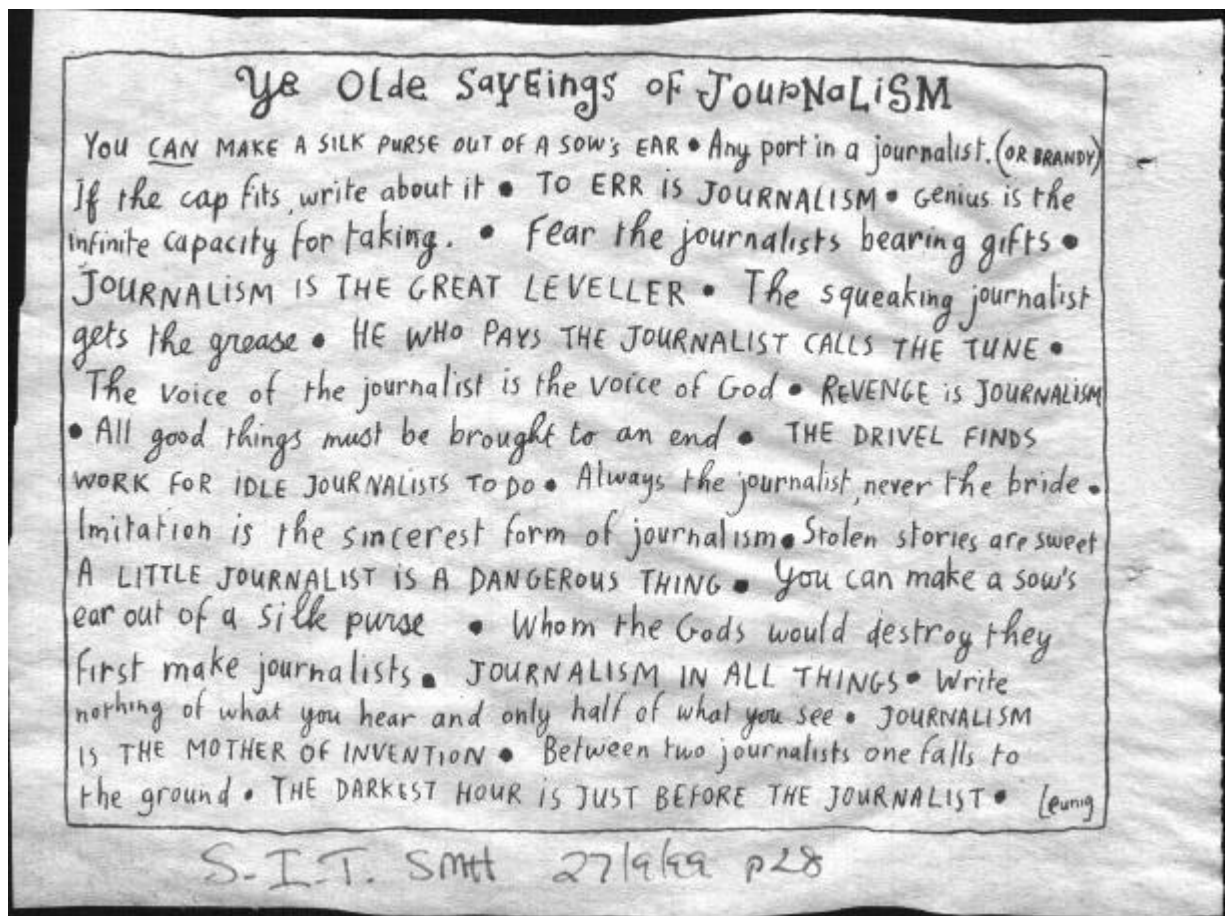 Ye Olde Sayeings of Journalism
You CAN MAKE A SILK PURSE OUT OF A SOW'S EAR • Any port in a journalist. (OR BRANDY)
If the cap fits, write about it • TO ERR is JOURNALISM • Genius is the
infinite capacity for taking. • Fear the journalists bearing gifts •
JOURNALISM IS THE GREAT LEVELLER • The squeaking journalist
gets the grease • HE WHO PAYS THE JOURNALIST CALLS THE TUNE •
The voice of the journalist is the voice of God • REVENGE is JOURNALISM
• All good things must be brought to an end • THE DRIVEL FINDS
WORK FOR IDLE JOURNALISTS TO DO • Always the journalist, never the bride •
Imitation is the sincerest form of journalism • Stolen stories are sweet
A LITTLE JOURNALIST IS A DANGEROUS THING • You can make a sow's
ear out of a silk purse • Whom the Gods would destroy they
first make journalists • JOURNALISM IN ALL THINGS • Write
nothing of what you hear and only half of what you see • JOURNALISM
IS THE MOTHER OF INVENTION • Between two journalists one falls to
the ground • THE DARKEST HOUR is JUST BEFORE THE JOURNALIST • Leunig
S.I.T. SMH 27/9/99 p28